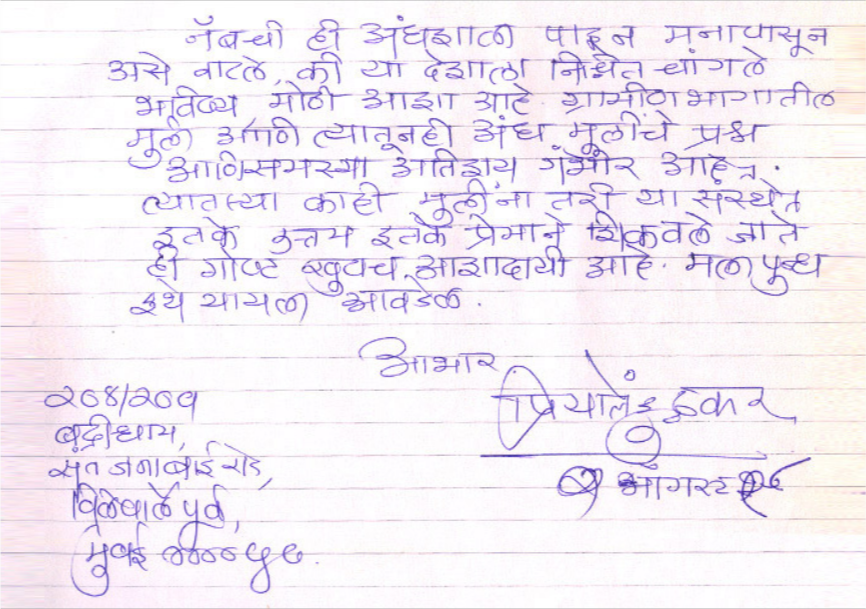 नॅबची ही अंधशाळा पाहून मनापासून
असे वाटले, की या देशाला निश्चित चांगले
भविष्य मोठी आशा आहे. ग्रामीण भागातील
मुली आणि त्यातूनही अंध मुलींचे प्रश्न
आणि समस्या अतिशय गंभीर आहेत.
त्यातल्या काही मुलींना तरी या संस्थेत
इतके उत्तम इतके प्रेमाने शिकवले जाते
ही गोष्ट खूपच आशादायी आहे. मला पुन्हा
इथे यायला आवडेल.
आभार
२०४/२०१
बद्रीधाम,
संत जनाबाई रोड,
विलेपार्ले पूर्व,
मुंबई ४०००५७.
ऑगस्ट